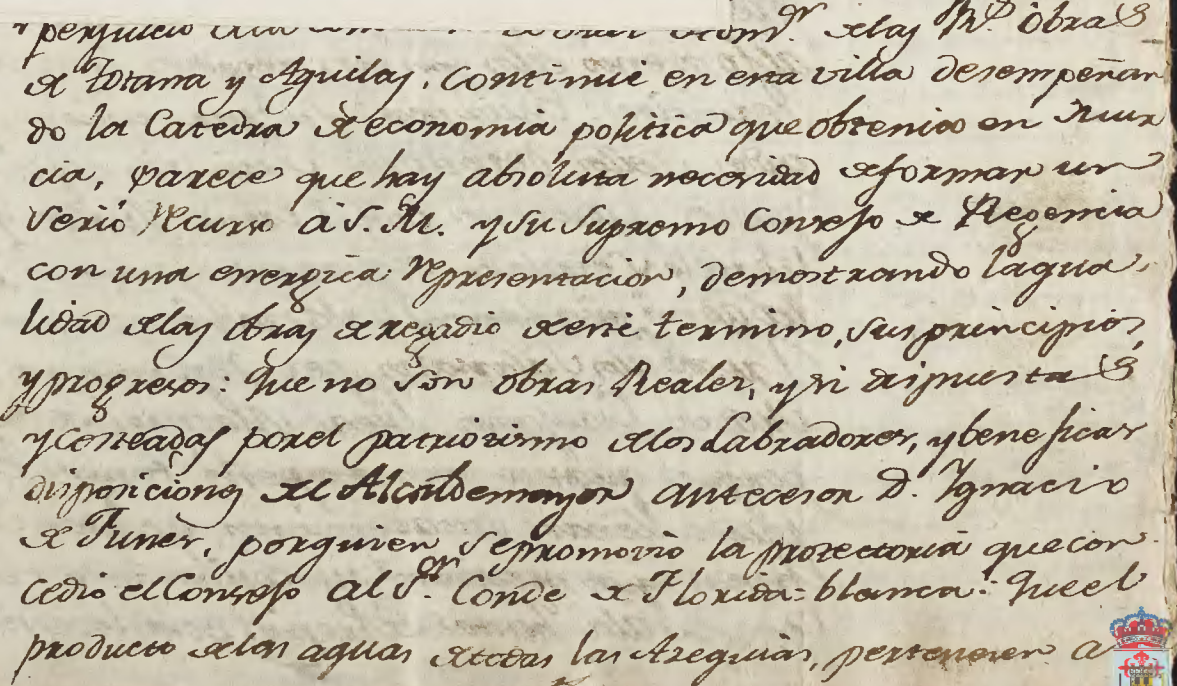 y perjuicio de las Rs. obras
de Totana y Aguilas, continue en esta villa desempeñan
do la Catedra de economia politica que obtenia en Mur
cia, parece que hay absoluta necesidad de formar un
serio recurso â S. M. y su supremo Consejo de Regencia
con una energica representacion, demostrando la qua
lidad de las obras de regadio de este termino, sus principios,
y progresos: Que no son obras Reales, y si dispuestas
y costeadas por el patriotismo de los Labradores, y beneficas
disposiciones del Alcaldemayor antecesor D. Ygnacio
de Funes, por quien se promovio la protectoria que con
cedio el Consejo al Sor. Conde de Florida=blanca: Que el
producto de las aguas de todas las Azequias, pertenecen a